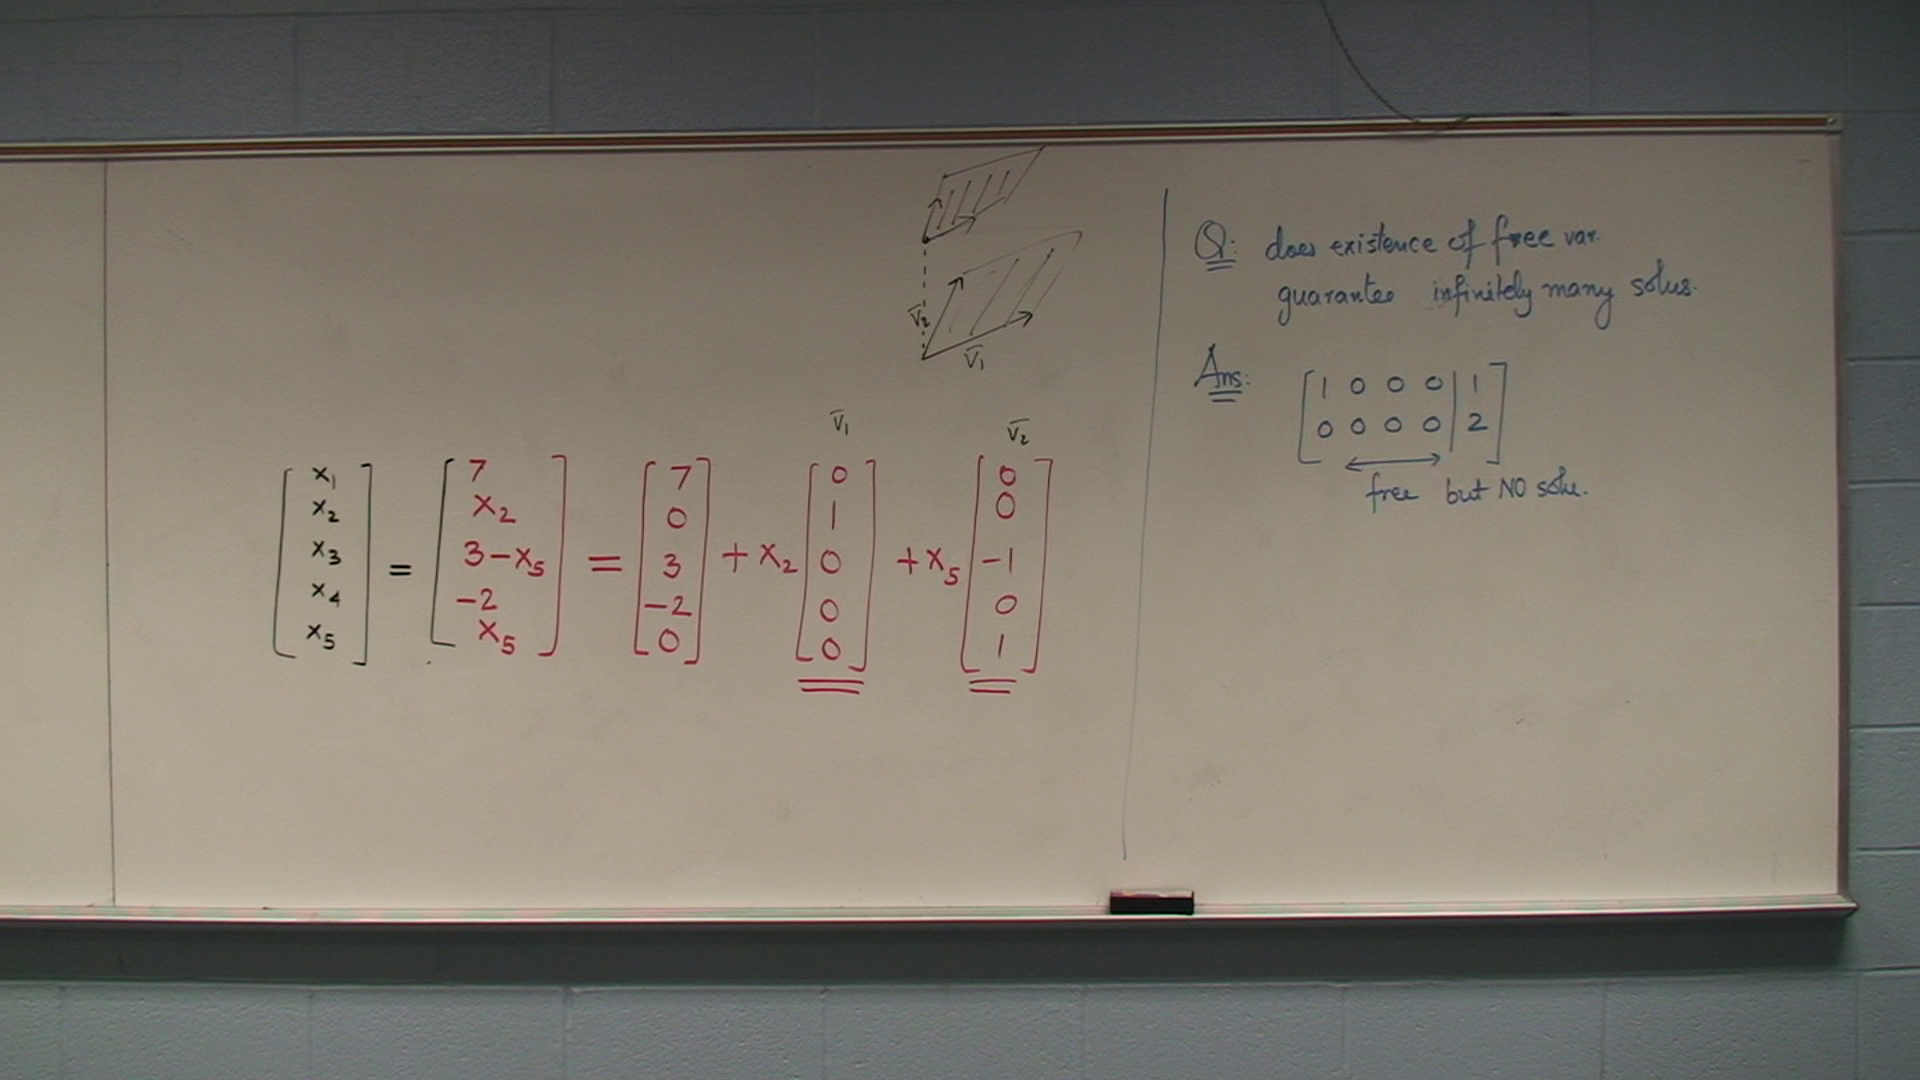 v̄₂
v̄₁
v̄₁ v̄₂
[x₁ x₂ x₃ x₄ x₅] = [7 x₂ 3-x₅ -2 x₅] = [7 0 3 -2 0] + x₂ [0 1 0 0 0] + x₅ [0 0 -1 0 1]
Q: does existence of free var.
guarantee infinitely many solns.
Ans:
[1 0 0 0 | 1
0 0 0 0 | 2]
free but NO soln.